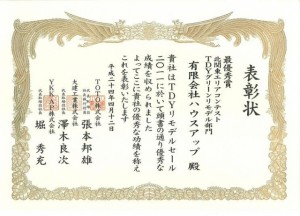 表彰状
最優秀賞
北関東エリアコンテスト
TDYグリーンリモデル部門
有限会社ハウスアップ 殿
貴社はTDYリモデルセール
二〇一一に於いて頭書の通り優秀な
成績を収められました
よってここに貴社の優秀な功績を称え
これを表彰いたします
平成二十四年四月十二日
TOTO株式会社
張本邦雄
大建工業株式会社
澤木良次
YKK AP株式会社
堀 秀充